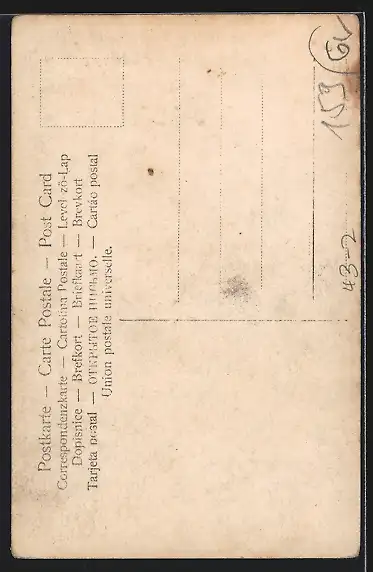 Postkarte — Carte Postale — Post Card
Correspondenzkarte — Cartolina Postale — Levelező-Lap
Dopisnice — Brefkort — Briefkaart — Brevkort
Tarjeta postal — ОТКРЫТОЕ ПИСЬМО. — Cartão postal
Union postale universelle.
43-2